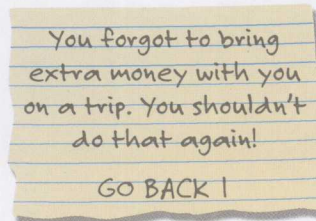 You forgot to bring
extra money with you
on a trip. You shouldn't
do that again!
GO BACK 1